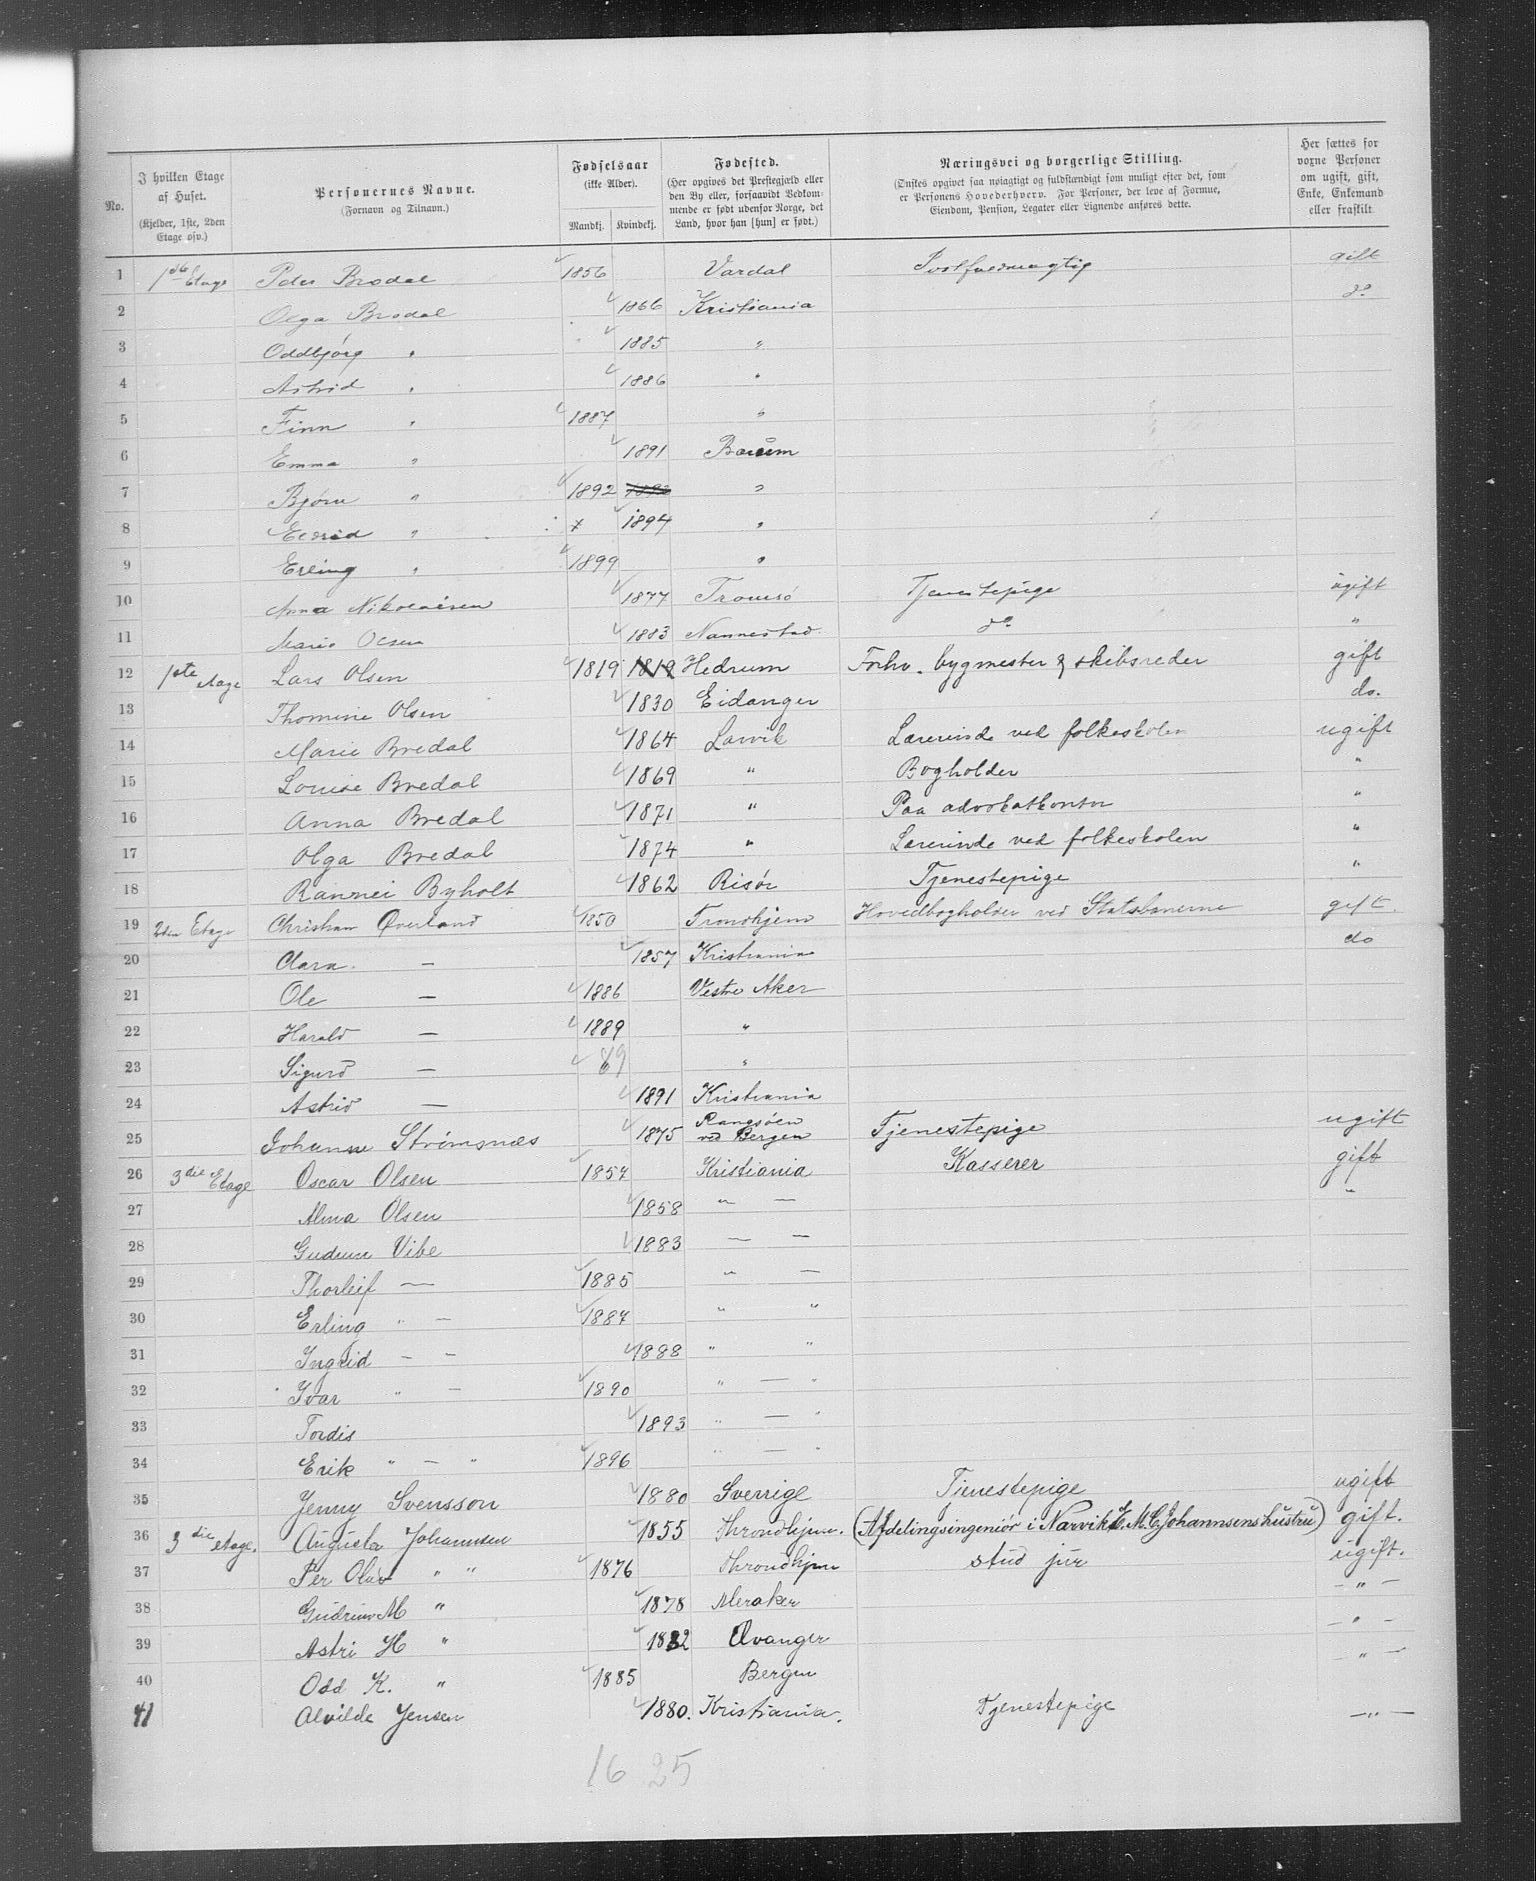 No.
I hvilken Etage af Huset.
(Kjelder, 1ste, 2den Etage osv.)
Personernes Navne.
(Fornavn og Tilnavn.)
Fødselsaar
(ikke Alder).
Mandkj. Kvindekj.
Fødested.
(Her opgives det Prestegjæld eller den By eller, forsaavidt Vedkommende er født udenfor Norge, det Land, hvor han [hun] er født.)
Næringsvei og borgerlige Stilling.
(Ønskes opgivet saa nøiagtigt og fuldstændigt som muligt efter det, som er Personens Hovederhverv. For Personer, der leve af Formue, Eiendom, Pension, Legater eller Lignende anføres dette.
Her sættes for voxne Personer om ugift, gift, Enke, Enkemand eller fraskilt
1 1ste Etage Peder Brodal 1856 Vardal Postfuldmægtig gift
2 Olga Brodal 1866 Kristiania do
3 Oddbjørg " 1885 "
4 Astrid " 1886 "
5 Finn " 1887 "
6 Emma " 1891 Bærum
7 Bjørn " 1892 1892 "
8 " x 1894 "
9 Erling " 1899 "
10 Anna Nikolaisen 1877 Tromsø Tjenestepige ugift
11 Marie Olsen 1883 Nannestad do "
12 1ste etage Lars Olsen 1819 1819 Hedrum Forhv. bygmester & skibsreder gift
13 Thomine Olsen 1830 Eidanger do.
14 Marie Bredal 1864 Larvik Lærerinde ved folkeskolen ugift
15 Louise Bredal 1869 " Bogholder "
16 Anna Bredal 1871 " Paa advokatkontor "
17 Olga Bredal 1874 " Lærerinde ved folkeskolen "
18 Rannei Byholt 1862 Risør Tjenestepige "
19 2den Etage Christian Øverland 1850 Trondhjem Hovedbogholder ved Statsbanerne gift.
20 Clara. — 1857 Kristiania do
21 Ole — 1886 Vestre Aker
22 Harald — 1889 "
23 Sigurd — 89 "
24 Astrid — 1891 Kristiania
25 Johanne Strømsnæs 1875 ved Bergen Tjenestepige ugift
26 3die Etage Oscar Olsen 1857 Kristiania Kasserer gift
27 Alma Olsen 1858 " — "
28 Gudrun Vibe 1883 — —
29 Thorleif — 1885 " —
30 Erling " — 1887 " "
31 Ingrid — " 1888 " "
32 Ivar " — 1890 " — "
33 Tordis 1893 " — "
34 Erik " — " 1896 " — "
35 Jenny Svensson 1880 Sverrige Tjenestepige ugift
36 3die etage. Augusta Johannsen 1855 Throndhjem. (Afdelingsingeniør i Narvik E. M. C. Johannsens hustru) gift.
37 Per Olav " " 1876 Throndhjem stud jur ugift.
38 Gudrun M " 1878 Meraker — " —
39 Astri H " 1882 Evanger — " —
40 Odd K. " 1885 Bergen — " —
41 Alvilde Jensen 1880. Kristiania. Tjenestepige — " —
16 25